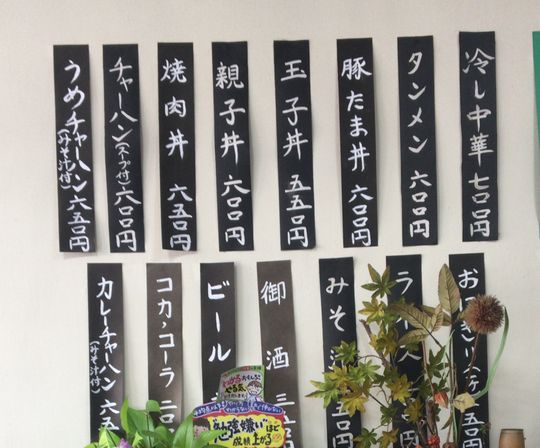 冷し中華 七〇〇円
タンメン 六〇〇円
豚たま丼 六〇〇円
玉子丼 五五〇円
親子丼 六〇〇円
焼肉丼 六五〇円
チャーハン(スープ付) 六〇〇円
うめチャーハン(みそ汁付) 六五〇円
みそ
御酒 三
ビール
コカ・コーラ 二〇
カレーチャーハン(みそ汁付) 六五
勉強嫌いほど
成績上がる